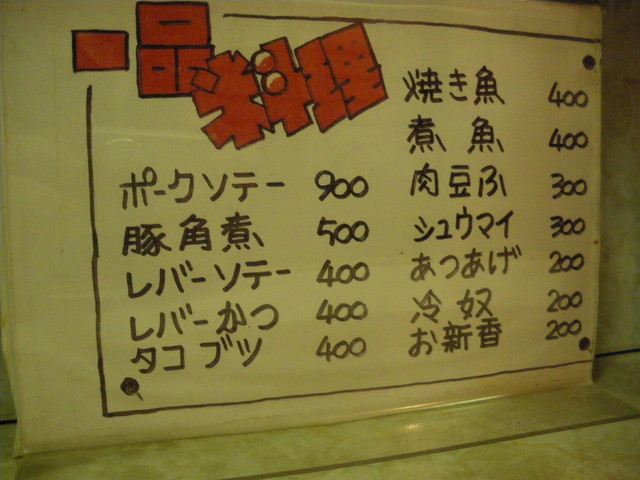 一品料理
ポークソテー 900
豚角煮 500
レバーソテー 400
レバーかつ 400
タコブツ 400
焼き魚 400
煮魚 400
肉豆ふ 300
シュウマイ 300
あつあげ 200
冷奴 200
お新香 200